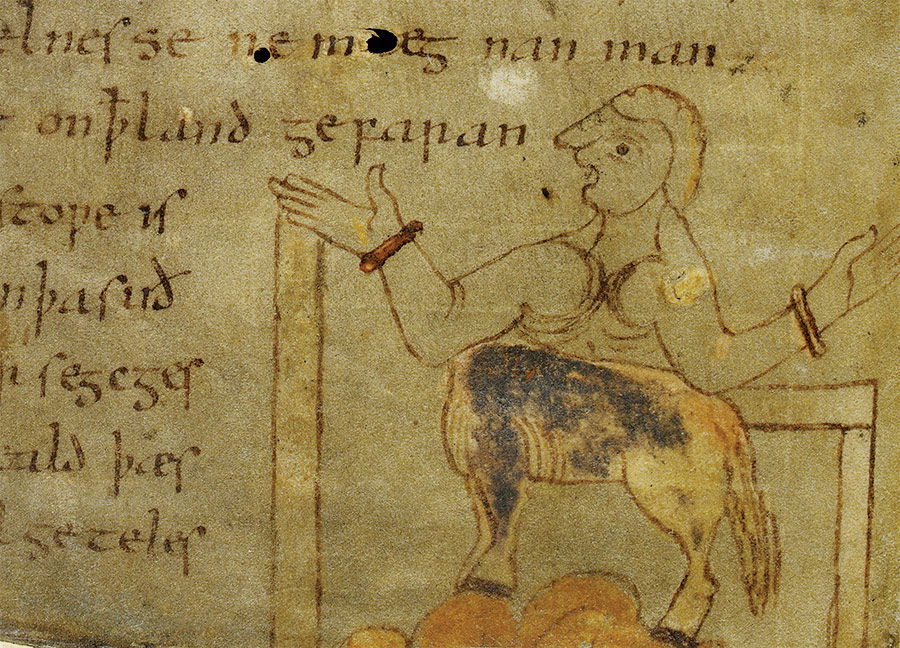 elnesse ne mæg nan man
on ꝥ land gefaran
stoƿe is
on þa suð
segeges
þæs
geteles